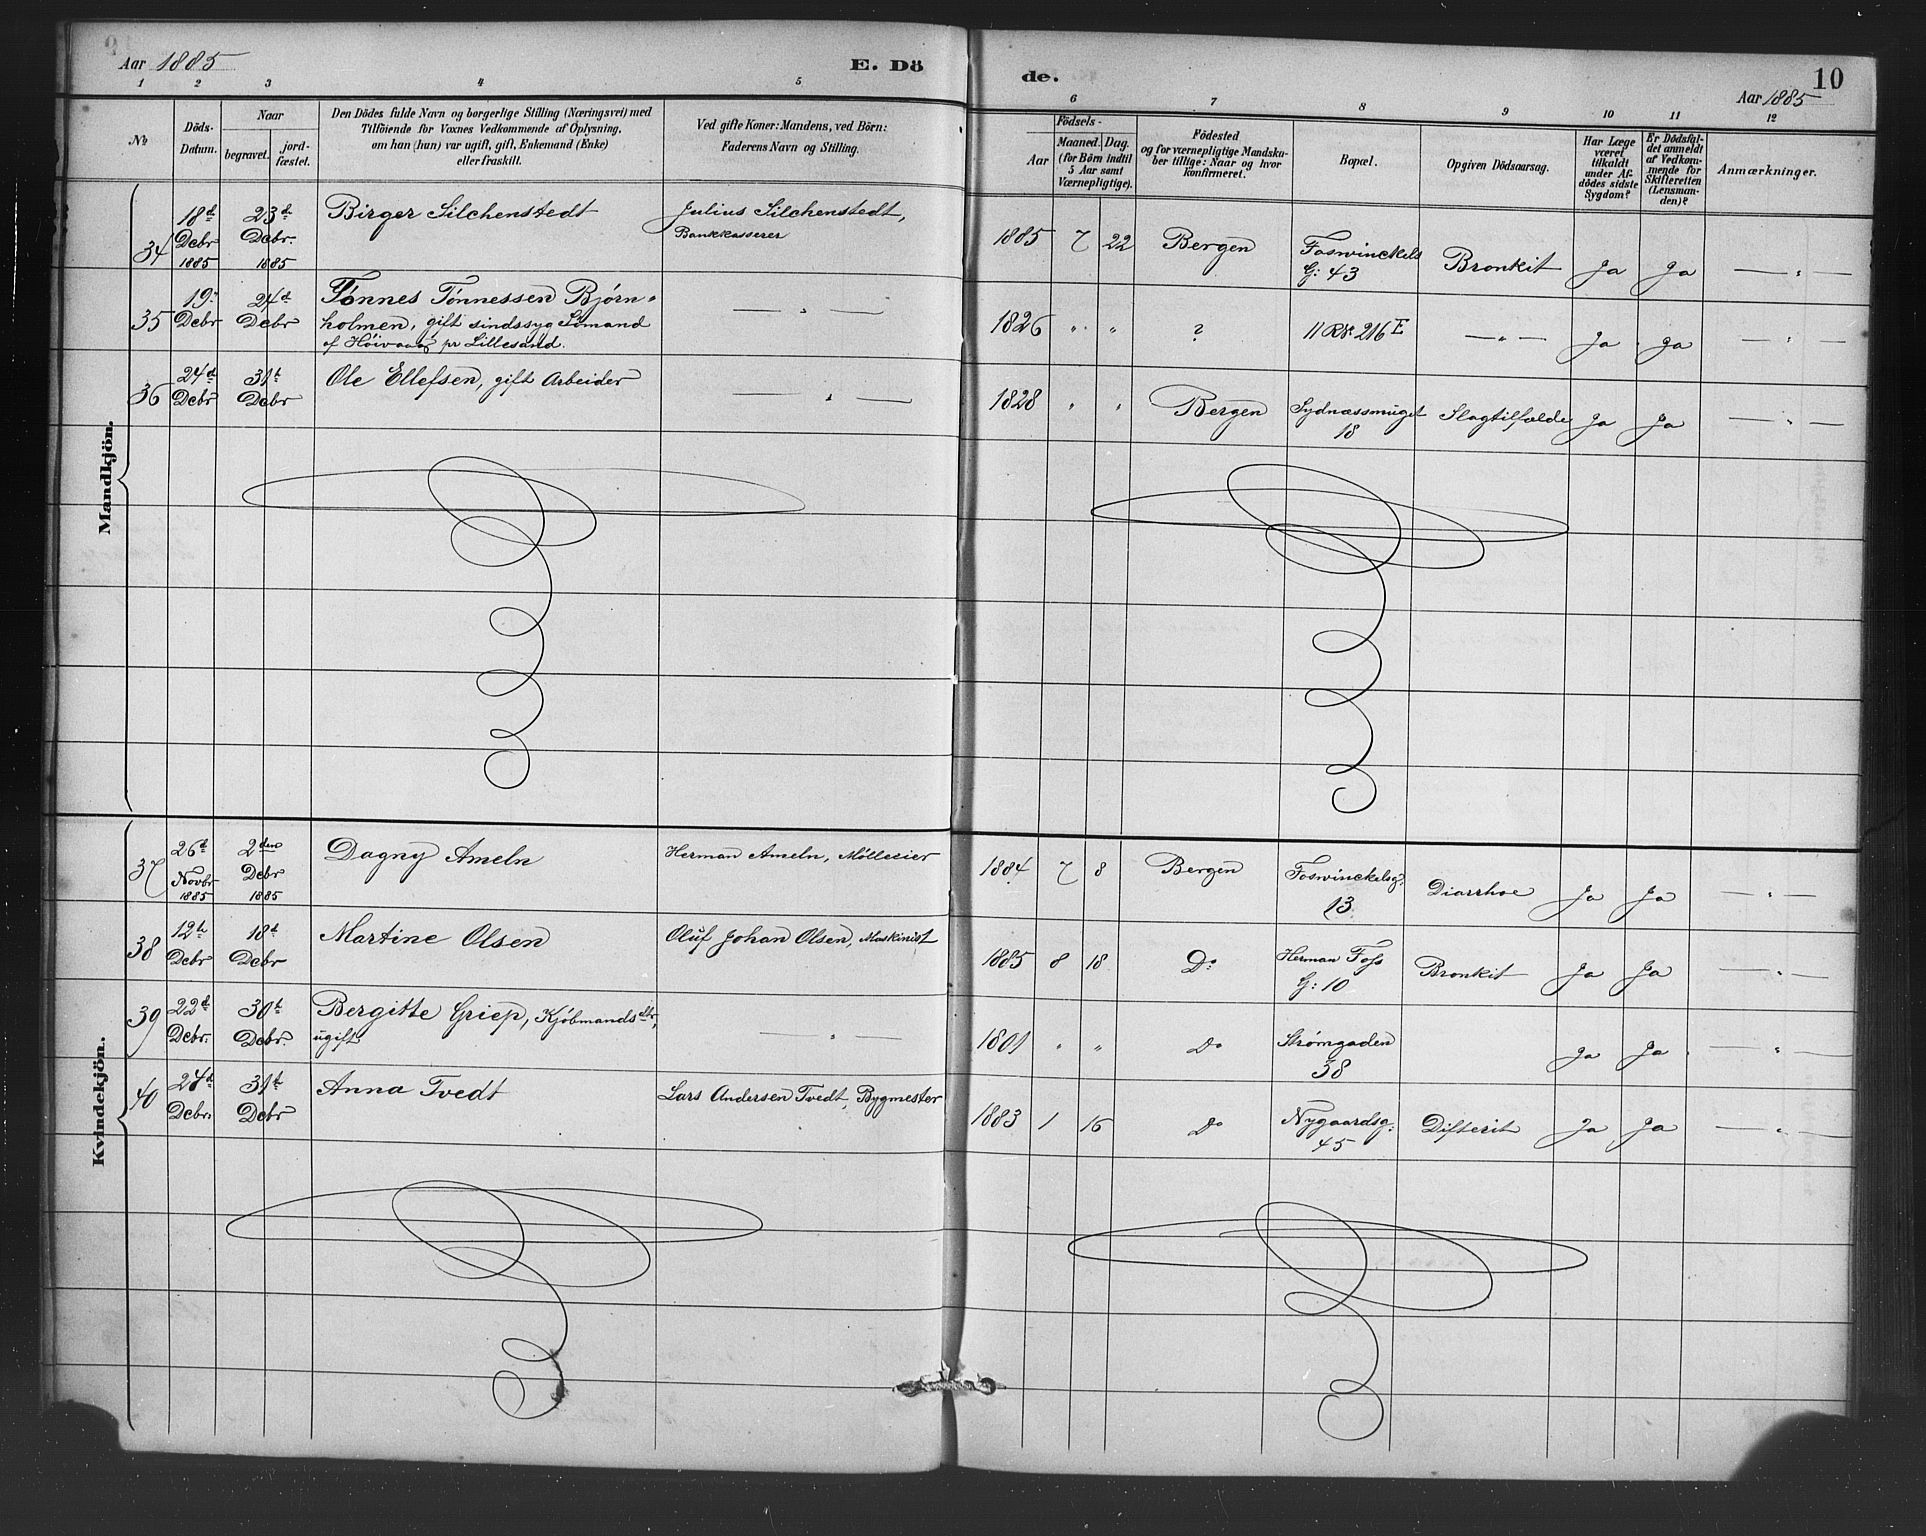 Aar 1885
E. Dö
de.
10
Aar 1885
1 2 3 4 5 6 7 8 9 10 11 12
No
Döds-
Datum.
Naar
begravet.
jord-
fæstet.
Den Dödes fulde Navn og borgerlige Stilling (Næringsvei) med
Tilföiende for Voxnes Vedkommende af Oplysning,
om han (hun) var ugift, gift, Enkemand (Enke)
eller fraskilt.
Ved gifte Koner: Mandens, ved Börn:
Faderens Navn og Stilling.
Födsels-
Aar
Maaned. Dag.
(for Börn indtil
5 Aar samt
Værnepligtige).
Födested
og for værnepligtige Mandska-
ber tillige: Naar og hvor
konfirmeret.
Bopæl.
Opgiven Dödsaarsag.
Har Læge
været
tilkaldt
under Af-
dödes sidste
Sygdom?
Er Dödsfal-
det anmeldt
af Vedkom-
mende for
Skifteretten
(Lensman-
den)?
Anmærkninger.
Mandkjön.
34
18d
Debr
1885
23d
Debr.
1885
Birger Silchenstedt
Julius Silchenstedt,
Bankkasserer
1885 7 22 Bergen
Foswinckels
G: 43
Bronkit Ja Ja — " —
35
19'
Debr
24d
Debr
Tönnes Tönnessen Bjørn-
holmen, gift sindssyg Sömand
af Høivaag pr Lillesand.
— " —
1826 " " ? 11 R No 216 E — " — Ja Ja — " —
36
24d
Debr
31t
Debr
Ole Ellefsen, gift Arbeider
— " —
1828 " " Bergen
Sydnæssmuget
18
Slagtilfælde Ja Ja — " —
Kvindekjön.
37
26d
Novbr
1885
2den
Debr
1885
Dagny Ameln
Herman Ameln, Mølleeier
1884 7 8 Bergen
Foswinckelsg:
13
Diarrhoe Ja Ja — " —
38
12te
Debr
18d
Debr
Martine Olsen
Oluf Johan Olsen, Maskinist
1885 8 18 Do
Herman Foss
G: 10
Bronkit Ja Ja — " —
39
22d
Debr.
30t
Debr.
Bergitte Griep, Kjøbmandsdtr,
ugift
— " —
1801 " " Do
Strømgaden
38
Ja Ja — " —
40
27d
Debr.
31t
Debr
Anna Tvedt
Lars Andersen Tvedt, Bygmester
1883 1 16 Do
Nygaardsg:
45
Difterit Ja Ja — " —